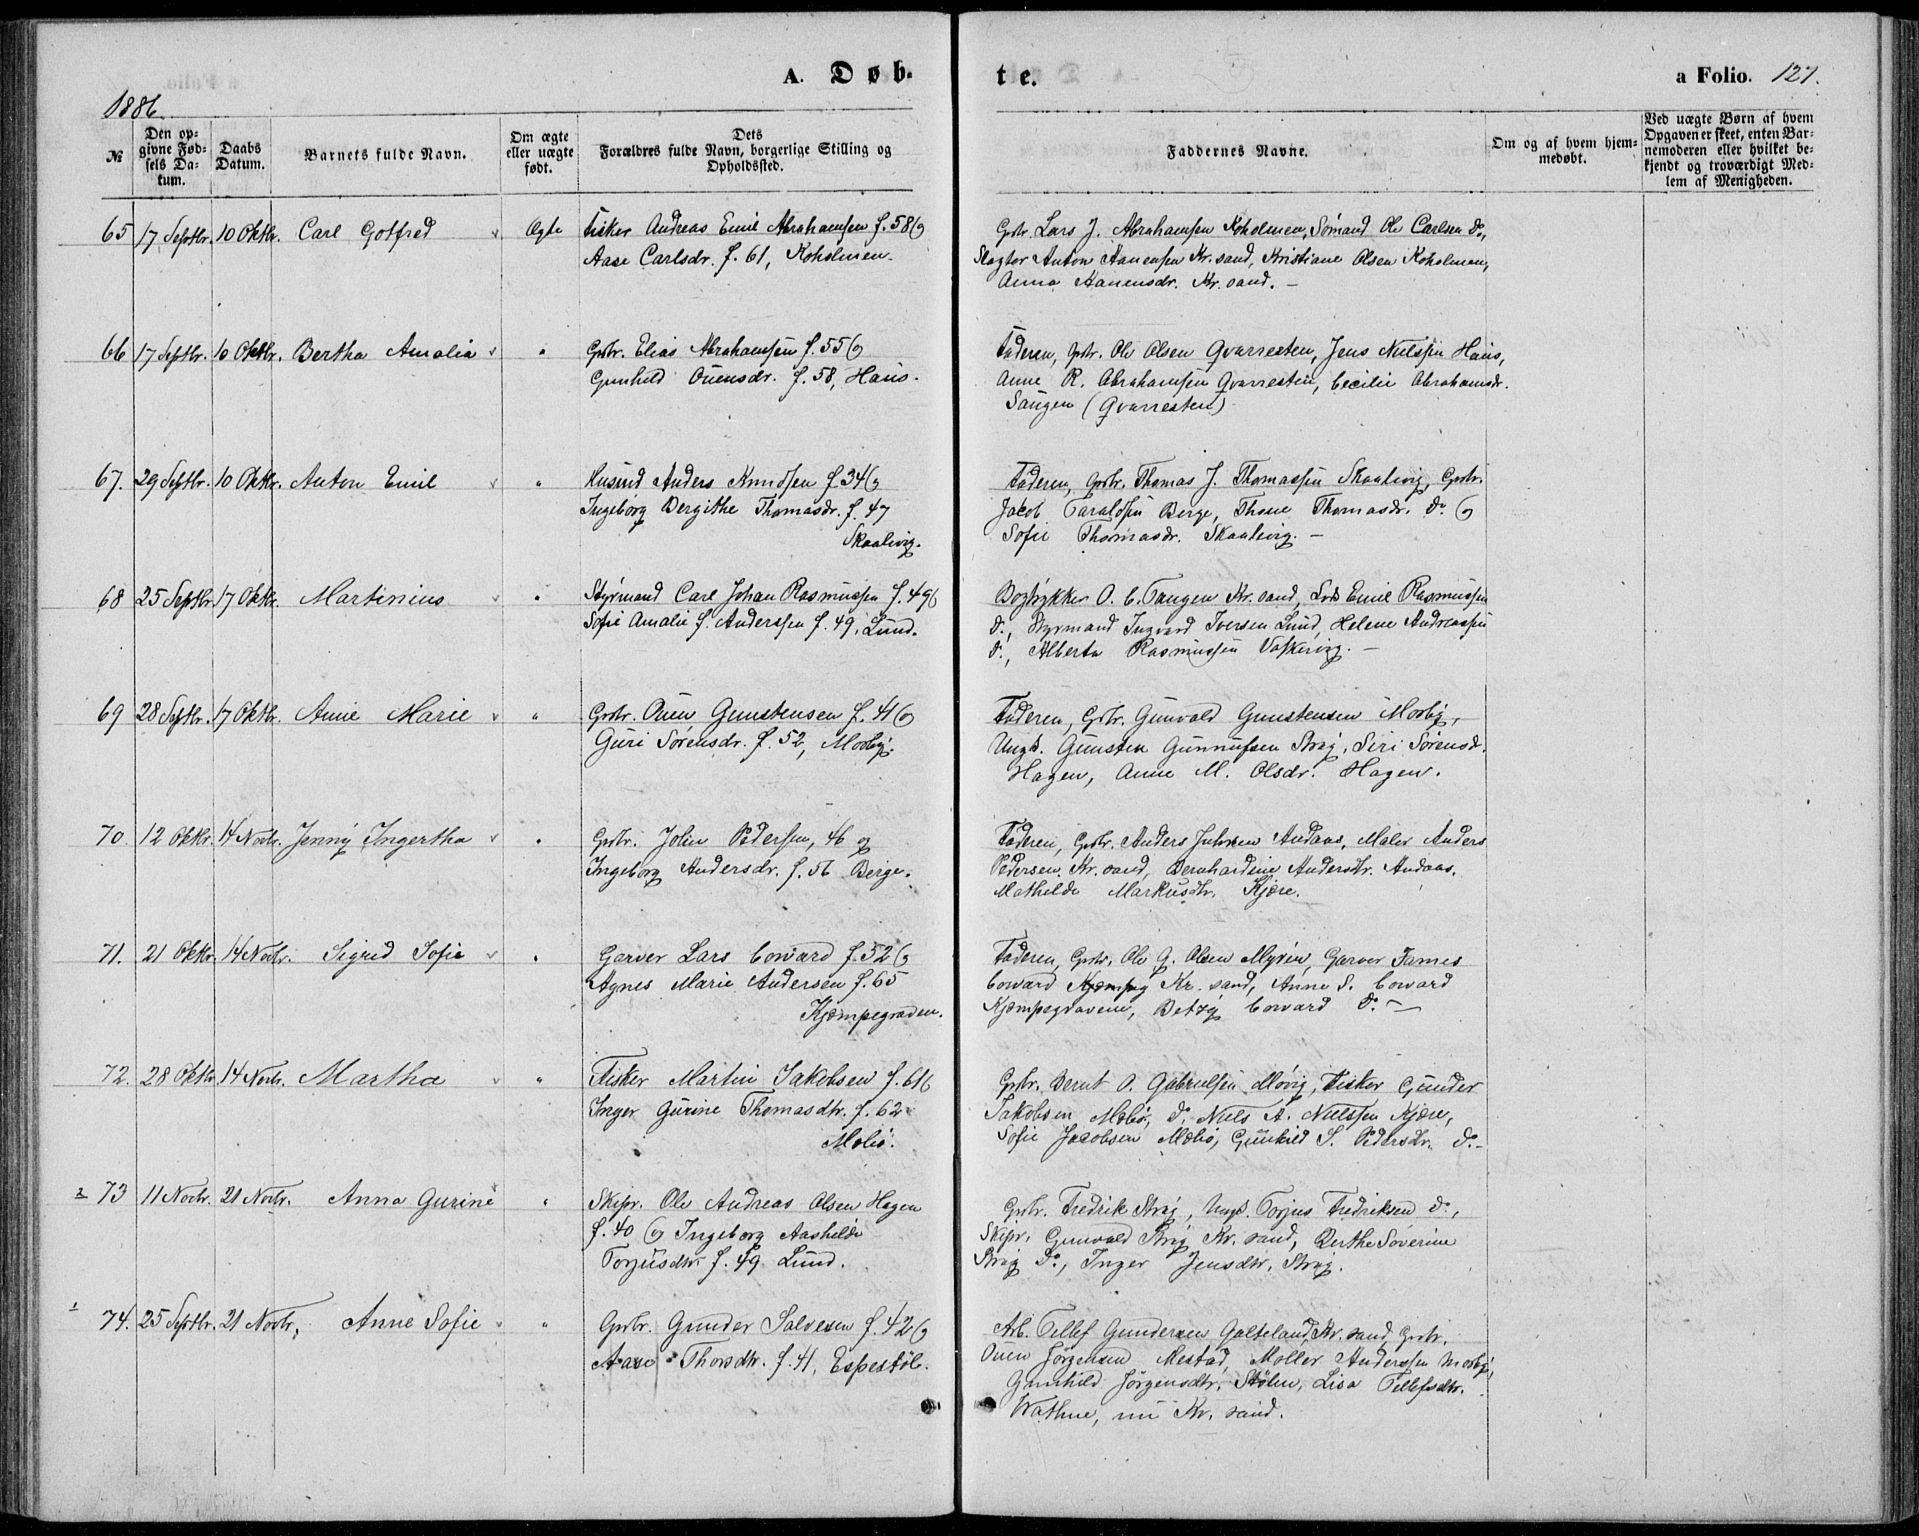 A. Døb-
te.
a Folio. 127.
1886.
№
Den op-
givne Fød-
sels Da-
tum.
Daabs
Datum.
Barnets fulde Navn.
Om ægte
eller uægte
født.
Dets
Forældres fulde Navn, borgerlige Stilling og
Opholdssted.
Faddernes Navne.
Om og af hvem hjem-
medøbt.
Ved uægte Børn af hvem
Opgaven er skeet, enten Bar-
nemoderen eller hvilket be-
kjendt og troværdigt Med-
lem af Menigheden.
65 17 Septbr. 10 Oktbr. Carl Gotfred Ægte Fisker Andreas Emil Abrahamsen f. 58 og
Aase Carlsdr. f. 61, Koholmen.
Gbr. Lars J. Abrahamsen Koholmen, Sømand Ole Carlsen do,
Slagter Anton Hansen Kr.sand, Kristiane Olsen Koholmen,
Anna Hanensdr. Kr.sand. —
66 17 Septbr. 10 Oktbr. Bertha Amalia " Gbr. Elias Abrahamsen f. 55 og
Gunhild Ouensdr. f. 58, Haus.
Faderen, Gbr. Ole Olsen Qvarresten, Jens Nielssen Haus,
Anne R. Abrahamsen Qvarresten, Cecilie Abrahamsdr.
Saugen (Qvarresten)
67. 29 Septbr. 10 Oktbr. Anton Emil " Husmd Anders Knudsen f. 34 og
Ingeborg Bergithe Thomasdr. f. 47
Skaalevig.
Faderen, Gbr. Thomas J. Thomassen Skaalevig, Gbr.
Jacob Taraldsen Berge, Thone Thomasdr. do og
Sofie Thomasdr. Skaalevig. —
68 25 Septbr. 17 Oktbr. Martinius " Styrmand Carl Johan Rasmussen f. 49 og
Sofie Amalie f. Anderssen f. 49, Lund.
Bogtrykker O. C. Tangen Kr.sand, Lods Emil Rasmussen
do, Styrmand Ingvard Iversen Lund, Helene Andreassen
do, Alberta Rasmussen Vaskevig. —
69 28 Septbr. 17 Oktbr. Anne Marie " Gbr. Ouen Gunstensen f. 41 og
Guri Sørensdr. f. 52, Mosby.
Faderen, Gbr. Gunvald Gunstensen Mosby,
Ungk. Gunsten Gunnufsen Strøj, Siri Sørensd.
Hagen, Anne M. Olsdr. Hagen.
70 12 Oktbr. 14 Novbr. Jenny Ingertha " Gbr. John Pedersen, 46 og
Ingeborg Andersdr. f. 56 Berge.
Faderen, Gbr. Anders Johnsen Andaas, Maler Anders
Pedersen Kr.sand, Bernhardine Andersdr. Andaas,
Mathilde Markusdtr. Kjære.
71. 21 Oktbr. 14 Novbr. Sigrid Sofie " Garver Lars Coward f. 52 og
Agnes Marie Andersen f. 65
Kjæmpegraven.
Faderen, Gbr. Ole G. Olsen Myren, Garver James
Coward Kr.sand, Anne S. Coward
Kjæmpegravene, Betzy Coward do —
72. 28 Oktbr. 14 Novbr. Martha " Fisker Martin Jakobsen f. 61 og
Inger Gurine Thomasdtr. f. 62
Mæbø.
Gbr. Bernt O. Gabrielsen Møvig, Fisker Gunder
Jakobsen Mæbø, do Niels A. Nielssen Kjære,
Sofie Jacobsen Mæbø, Gunhild S. Pedersdtr. do —
2 73 11 Novbr. 21 Novbr. Anna Gurine " Skipr. Ole Andreas Olsen Hagen
f. 40 og Ingeborg Aashilde
Torjusdtr. f. 49 Lund.
Gbr. Fredrik Strøj, Ungk. Torjus Fredriksen do,
Skipr. Gunvald Strøj Kr.sand, Berthe Soverine
Strøj do, Inger Jensdtr. Strøj.
1 74. 25 Septbr. 21 Novbr. Anne Sofie " Gbr. Gunder Salvesen f. 42 og
Aase Thorsdtr. f. 41, Espestøl.
Arb. Tellef Gundersen Galteland, Kr.sand, Gbr.
Ouen Jörgensen Mestad, Møller Anderssen Mosby,
Gunhild Jörgensdtr. Stølen, Lisa Tellefsdtr.
Wathne, nu Kr.sand.